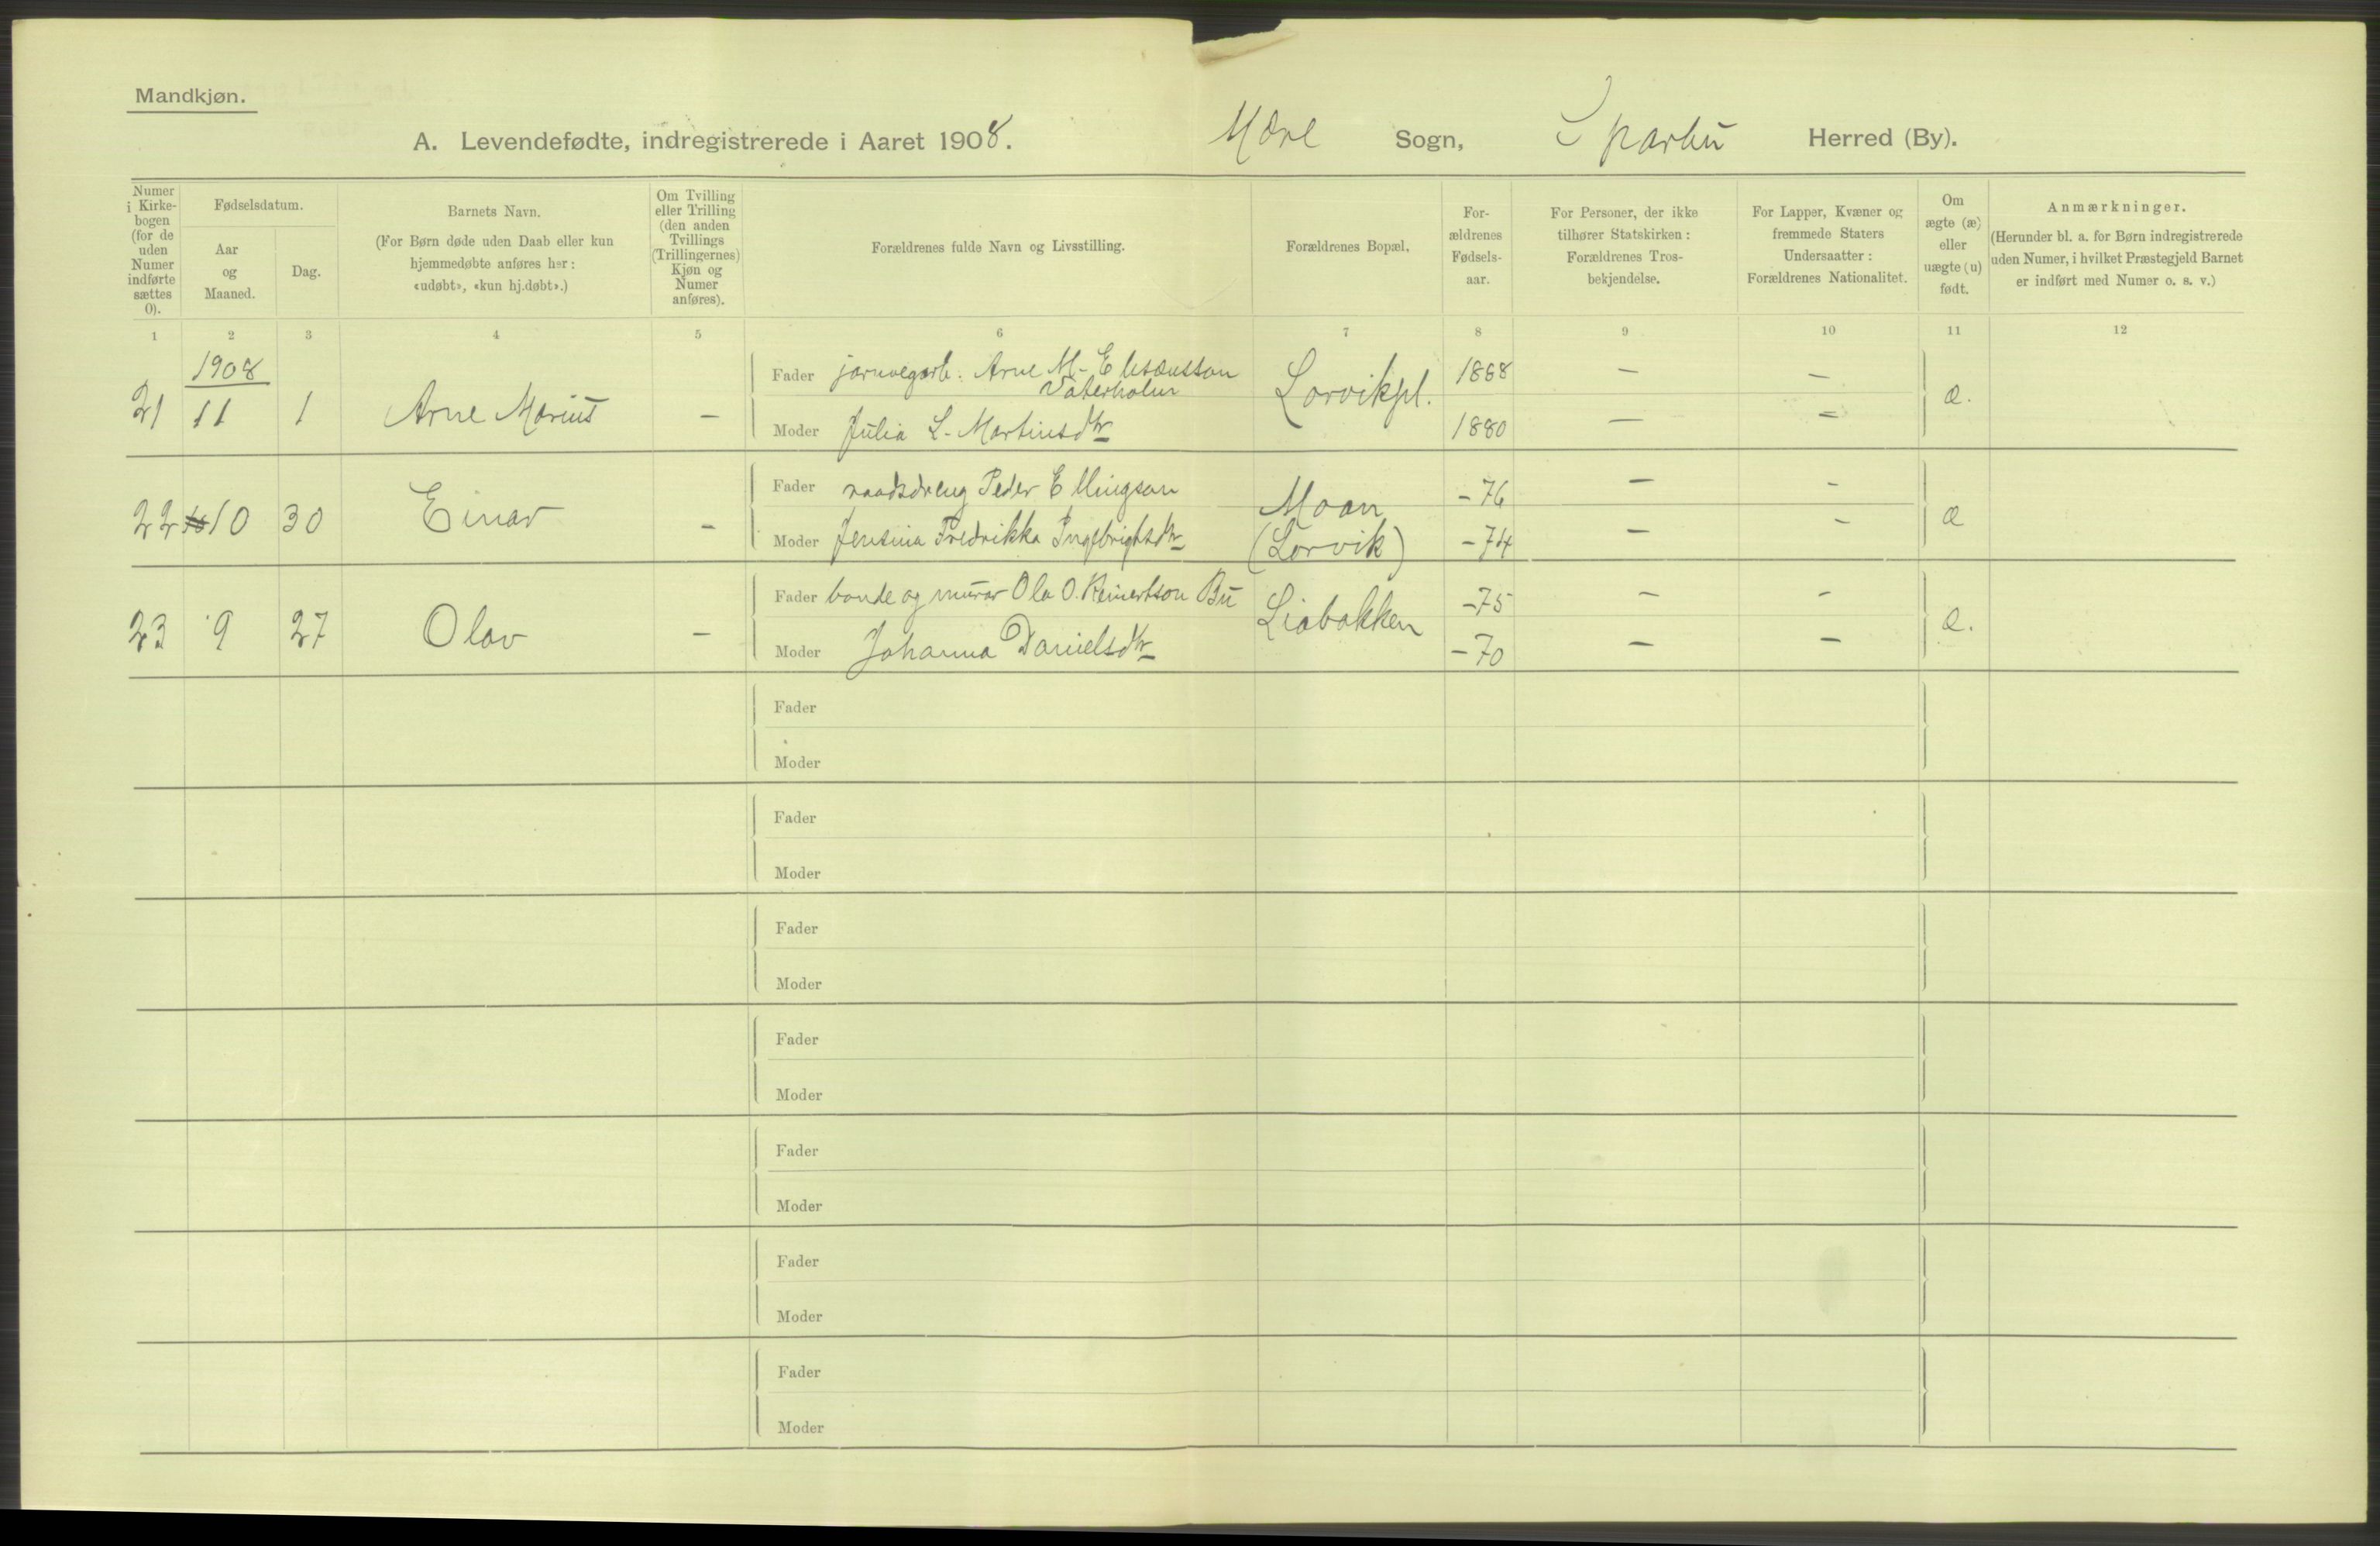 Mandkjøn.
A. Levendefødte, indregistrerede i Aaret 1908. Mære Sogn, Sparbu Herred (By).
Numer i Kirke-bogen (for de uden Numer indførte sættes 0).
Fødselsdatum.
Aar og Maaned.
Dag.
Barnets Navn.
(For Børn døde uden Daab eller kun hjemmedøbte anføres her: «udøbt», «kun hj.døbt».)
Om Tvilling eller Trilling (den anden Tvillings (Trillingernes) Kjøn og Numer anføres).
Forældrenes fulde Navn og Livsstilling.
Forældrenes Bopæl.
For-ældrenes Fødsels-aar.
For Personer, der ikke tilhører Statskirken: Forældrenes Tros-bekjendelse.
For Lapper, Kvæner og fremmede Staters Undersaatter: Forældrenes Nationalitet.
Om ægte (æ) eller uægte (u) født.
Anmærkninger.
(Herunder bl. a. for Børn indregistrerede uden Numer, i hvilket Præstegjeld Barnet er indført med Numer o. s. v.)
1 2 3 4 5 6 7 8 9 10 11 12
1908
21 11 1 Arne Marius – Fader jarnvegarb. Arne M. Elisæusson Lorvikpl. 1868 – – æ.
Vaterholm
Moder Julia L. Martinsdtr 1880 – –
22 10 30 Einar – Fader raadsdreng Peder Ellingson Moan – 76 – – æ
Moder Jensina Fredrikka Ingebrigtsdtr (Lorvik) – 74 – –
23 9 27 Olav – Fader bonde og murar Ola O. Reinertson Bu Liabakken – 75 – – æ.
Moder Johanna Danielsdtr – 70 – –
Fader
Moder
Fader
Moder
Fader
Moder
Fader
Moder
Fader
Moder
Fader
Moder
Fader
Moder